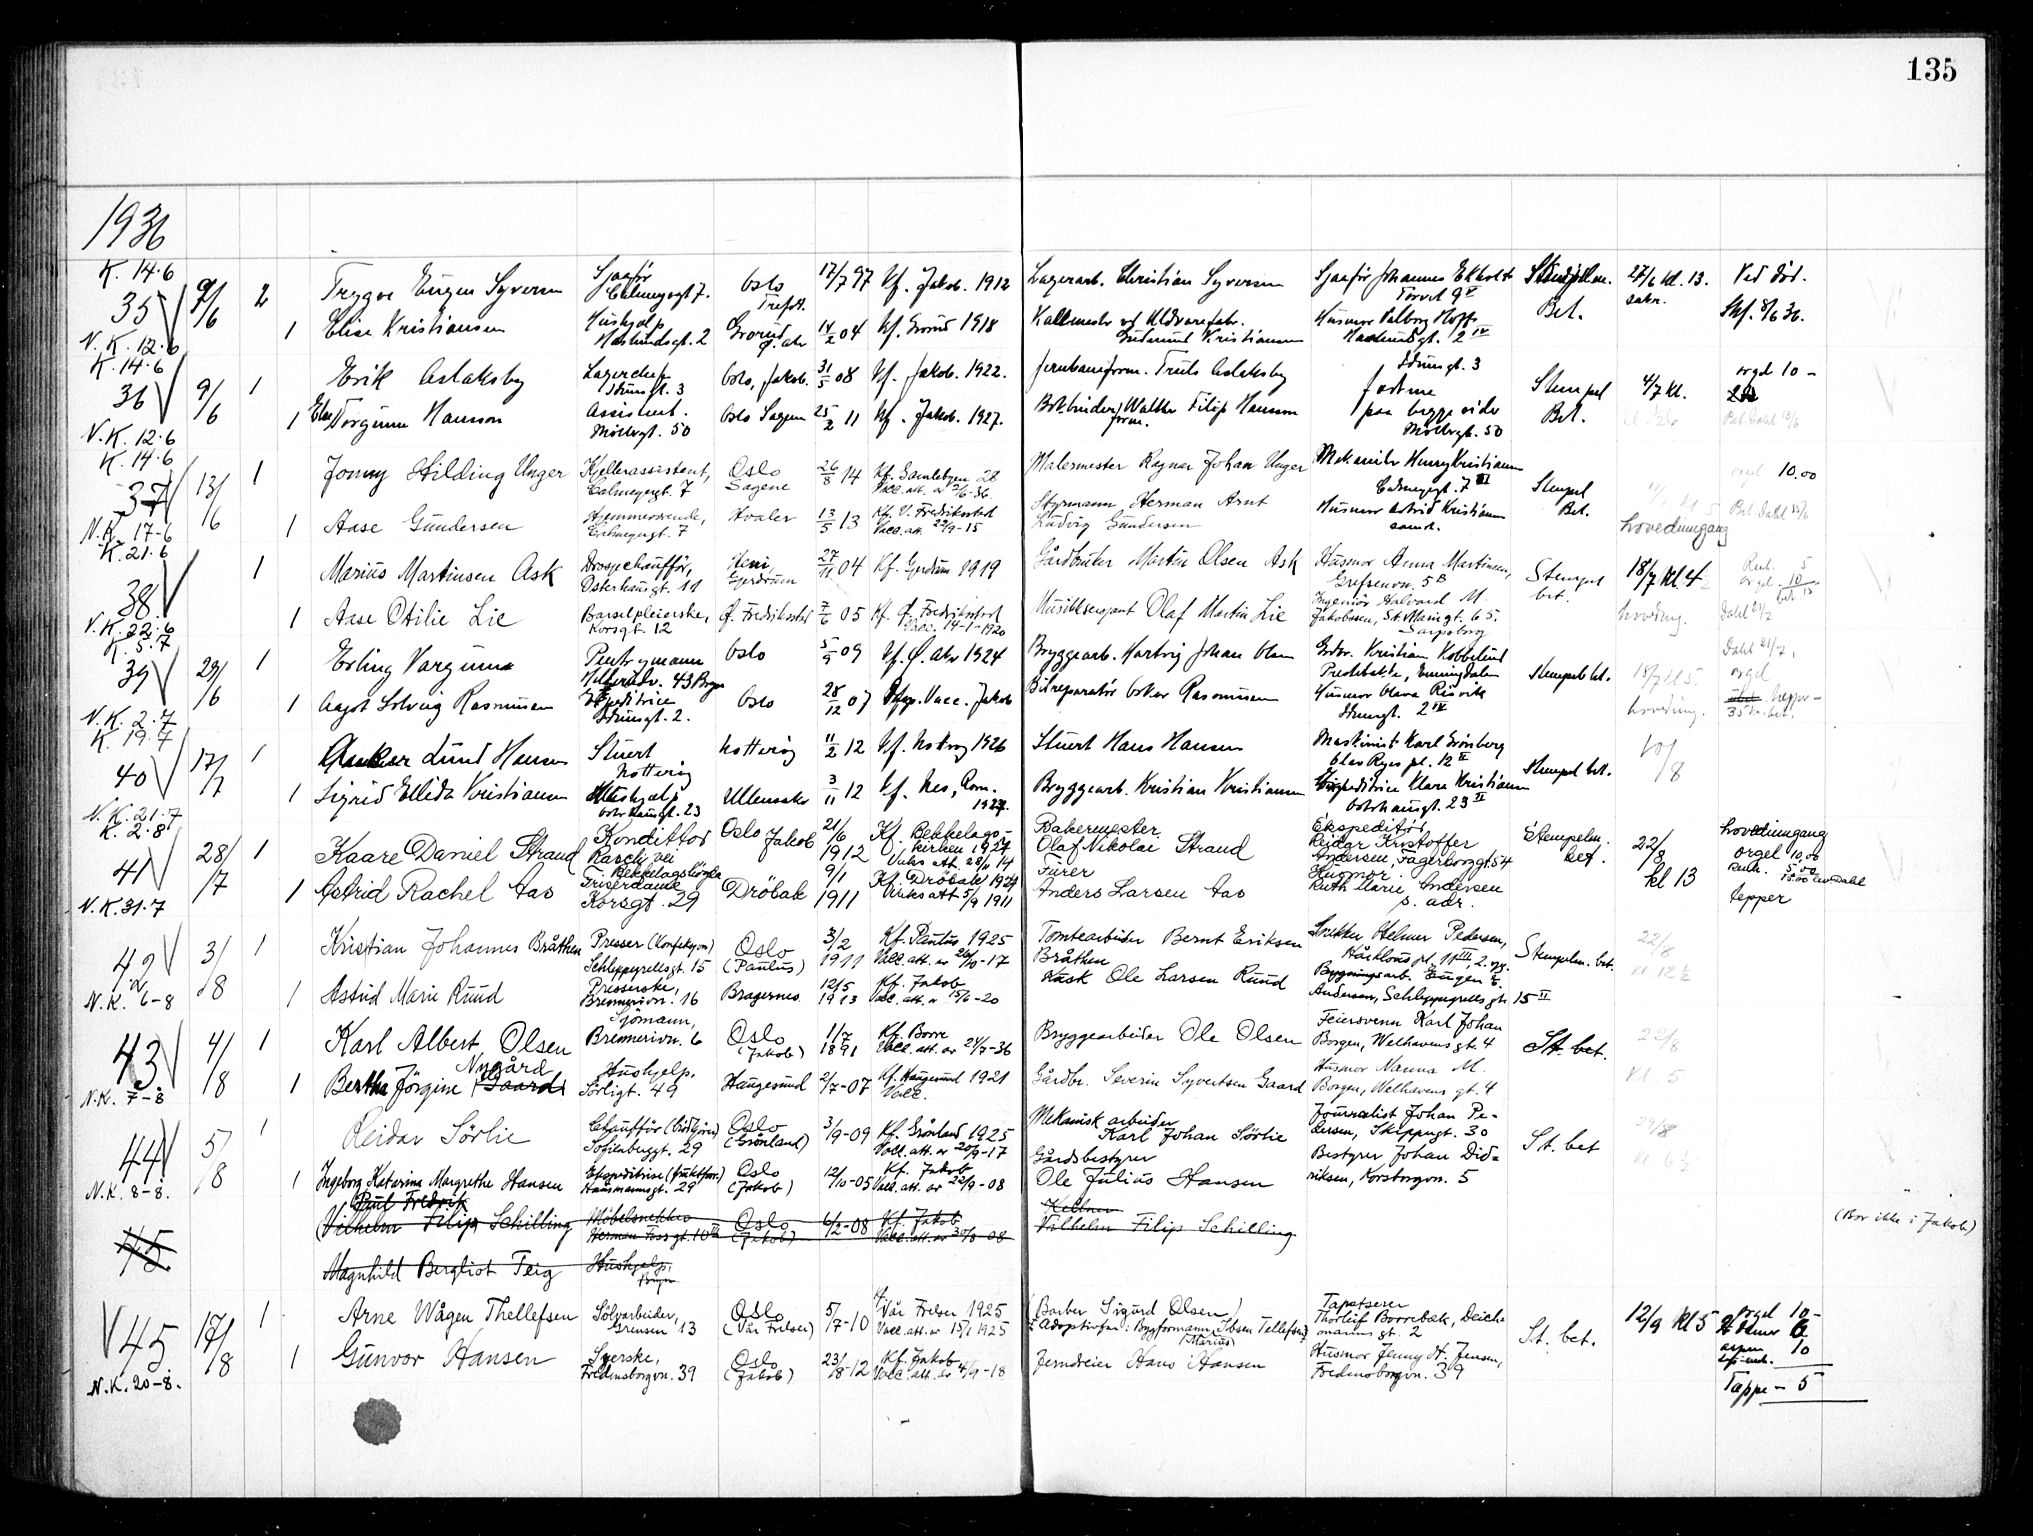 135
1936
K. 14.6
35
9/6
2
Trygve Eugen Syversen
Sjaafør
Calmeyergt 7.
Oslo
Treft.
17/7 97
Kf. Jakob. 1912
Lagerarb. Christian Syversen
Sjaafør Johannes Ekholt
Torvet 9 V
Bet.
27/6 kl. 13.
Ved død.
Skf. 8/6 36.
N. K. 12.6
1
Elise Kristiansen
Hushjelp
Hauslundsgt. 2
Grorud
Ø. Aker
14/2 04
Kf. Grorud 1918
Gudmund Kristiansen
Husmor Valborg Hoff
2 IV
K. 14.6
36
9/6
1
Erik Aslaksby
Lagerchef
Idunsgt. 3
Oslo, Jakob.
31/5 08
Kf. Jakob. 1922.
Jernbaneform. Truls Aslaksby
Idunsgt. 3
fedrene
paa begge sider
Møllergt. 50
Stempel
Bet.
4/7 kl.
orgel 10 -
N. K. 12.6
1
Else Torgunn Hansson
Assistent.
Møllergt. 50
Oslo Sagene
25/2 11
Kf. Jakob. 1927.
Bokbinder form. Walther Filip Hansson
K. 14.6
37
13/6
1
Jonny Hilding Unger
Kjellerassistent,
Calmeyergt. 7
Oslo
Sagene
26/8 14
Kf. Gamlebyen 28
Vacc. att. av 5/6-36.
Malermester Ragnar Johan Unger
Mekaniker Henry Kristiansen
Calmeyergt. 7 III
Stempel
Bet.
10.00
N. K. 17-6
1
Aase Gundersen
Hjemmeværende,
Calmeyergt. 7
Hvaler
13/5 13
Kf. V. Fredrikstad
Vacc. att. 29/9-15
Styrmann Herman Arnt
Ludvig Gundersen
Husmor Astrid Kristiansen
samt.
hovedinngang
Bet. Dahl
K. 21.6
38
1
Marius Martinsen Ask
Drosjechauffør,
Osterhausgt. 11
Heni,
Gjerdrum
27/11 04
Kf. Gjerdrum 1919
Gårdbruker Martin Olsen Ask
Husmor Anna Martinsen,
Grefsenvn. 5 B
Stempel
bet.
18/7 kl. 4
V. K. 22.6
1
Aase Otilie Lie
Barselpleierske,
Korsgt. 12
Ø. Fredrikstad
7/6 05
Kf. Ø. Fredrikstad
Vacc. 14-1-1920
Musikksersjant Olaf Martin Lie
Ingeniør Halvard M.
Jakobsen, St. Mariegt. 65.
Sarpsborg
Dahl 21/7
K. 5.7
39
29/6
1
Erling Vargum
Pentrymann
43 Bryn
Oslo
5/9 09
Kf. Ø. Aker 1924
Bryggearb. Hartvig Johan Olsen
Grdbr. Kristian Kobbelund
Prestebakke, Enningdalen
Stempelb bet.
18/7 kl 5
Dahl 21/7,
orgel
N. K. 2.7
1
Aagot Solveig Rasmussen
Ekspeditrice
Idunsgt. 2.
Oslo
28/12 07
Vacc. Jakob
Bilreparatør Oskar Rasmussen
Husmor Olava Risvik
Idunsgt. 2 IV
K. 19.7
40
17/7
1
Anker Lund Hansen
Stuert
Nøtterøy
Nøtterøy
11/2 12
Kf. Nøtterøy 1926
Stuert Hans Hansen
Maskinist Karl Grønberg
Olav Ryes pl. 12 II
Stempel bet.
10/8
N. K. 21.7
1
Sigrid Ellida Kristiansen
Hushjelp
Osterhausgt. 23
Ullensaker
3/11 12
Kf. Nes, Rom.
1927.
Bryggearb. Kristian Kristiansen
Ekspeditrice Klara Kristiansen
Osterhausgt. 23 II
K. 2.8
41
28/7
1
Kaare Daniel Strand
Konditor
Rasch vei
Bekkelagshøgda
Oslo Jakob
21/6
1912
Kf. Bekkelags-
kirken 1927
Vaks att. 28/11 14
Bakermester
Olaf Nikolai Strand
Ekspeditør
Reidar Kristoffer
Andersen, Fagerborggt. 54
Stempelm.
bet.
22/8
kl 13
hovedinngang
orgel 10,00
tepper
N. K. 31.7
1
Astrid Rachel Aas
Friserdame
Korsgt. 29
Drøbak
9/1
1911
Kf. Drøbak 1927
Vaks att 5/9 1911
Fürer
Anders Larsen Aas
Husmor
Ruth Marie Andersen
s. adr.
42
3/8
1
Kristian Johannes Bråthen
Presser (Konfeksjon)
Schleppegrellsgt. 15
Oslo
(Paulus)
3/2
1911
Kf. Paulus 1925
Vacc. att. av 26/10-17
Tomtearbeider Bernt Eriksen
Bråthen
Snekker Helmer Pedersen,
Hårklous pl. 11 III, 2. opg.
Stempelm. bet.
22/8
kl. 12 ½
N. K. 6-8
1
Astrid Marie Ruud
Presserske,
Brennerivn. 16
Bragernes
12/5
1913
Kf. Jakob
Vac. att. av 15/6-20
Vask Ole Larsen Ruud
Bygningsarb. Eugen E.
Andersen, Schleppegrells gt. 15 II
43
4/8
1
Karl Albert Olsen
Sjømann,
Brenneriv. 6
Oslo
(Jakob)
1/7
1891
Kf. Borre
Vacc. att. av 24/7-36
Bryggearbeider Ole Olsen
Feiersvenn Karl Johan
Borgen, Welhavens gt. 4
St. bet.
22/8
kl. 5
N. K. 7-8
1
Nygård
Bertha Jörgine (Gaard)
Hushjelp.
Sörligt. 49
Haugesund
2/7-07
Kf. Haugesund 1921
Vacc.
Gårdbr. Severin Syvertsen Gaard
Husmor Nanna M.
Borgen, Welhavens gt. 4
44
5/8
1
Reidar Sörlie
Chauffør (Lidkjøre)
Sofienberggt. 29
Oslo
(Grønland)
3/9-09
Kf. Grønland 1925
Vacc. att. av 20/9-17
Mekanisk arbeider
Karl Johan Sörlie
Journalist Johan Pe-
dersen, Skippergt. 30
St. bet
29/8
kl. 6 ½
N. K. 8-8.
1
Ingeborg Katarina Margrethe Hansen
Ekspeditrise (fruktforr.)
Hausmannsgt. 29
Oslo
(Jakob)
12/10-05
Kf. Jakob
Vacc. att. av 22/9-08
Gårdsbestyrer
Ole Julius Hansen
Bestyrer Johan Did=
riksen, Korsborgvn. 5
45
Paul Fredrik
(Vilhelm Filip Schilling
Möbelsnekker
Herman Foss gt. 10
Oslo
(Jakob)
6/2-08
Kf. Jakob
Vacc. att. av 30/8-08
Kelner
Vilhelm Filip Schilling
(Bor ikke i Jakob)
Magnhild Bergliot Teig
Hushjelp,
Bryn
45
17/8
1
Arne Wågen Thellefsen
Sölvarbeider,
Grensen 13
Oslo
(Vår Frelser)
5/7-10
Vår Frelser 1925
Vacc. att. av 15/1 1925
(Barber Sigurd Olsen)
Adoptivfar: Byggformann Ibsen Tellefsen
Tapetserer
Thorleif Borrebæk, Deich-
manns gt. 2
St. bet.
12/9 kl 5
orgel 10-
10
Teppe - 5
N. K. 20-8.
1
Gunvor Hansen
Syerske,
Fredensborgvn. 39
Oslo
(Jakob)
23/8-12
Kf. Jakob
Vacc. att. av 4/9-18
Jerndreier Hans (Marius) Hansen
Husmor Jenny H. Jensen,
Fredensborgvn. 39